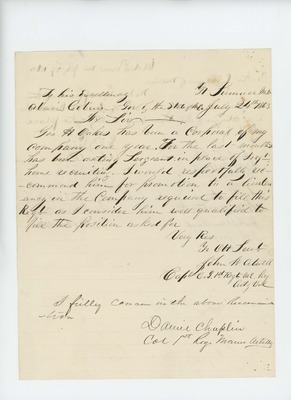 Ft Sumner Md
To his Excellency
Abner Coburn Gov of the State of Me July 24th 1863
Dr Sir
Geo H Oakes has been a Corporal of my
Company one year. For the last months
has been acting Sergeant in place of Sergt
home recruiting. I would respectfully re-
commend him for promotion to a Lieuten
ancy in the Company required to fill this
Regt as I consider him well qualified to
fill the Position asked for
Very Res
Yr Obt Servt
John W Atwell
Capt C 1st Regt
I fully concur in the above recommen
-dation
Daniel Chaplin
Col 1st Reg Maine Artilly